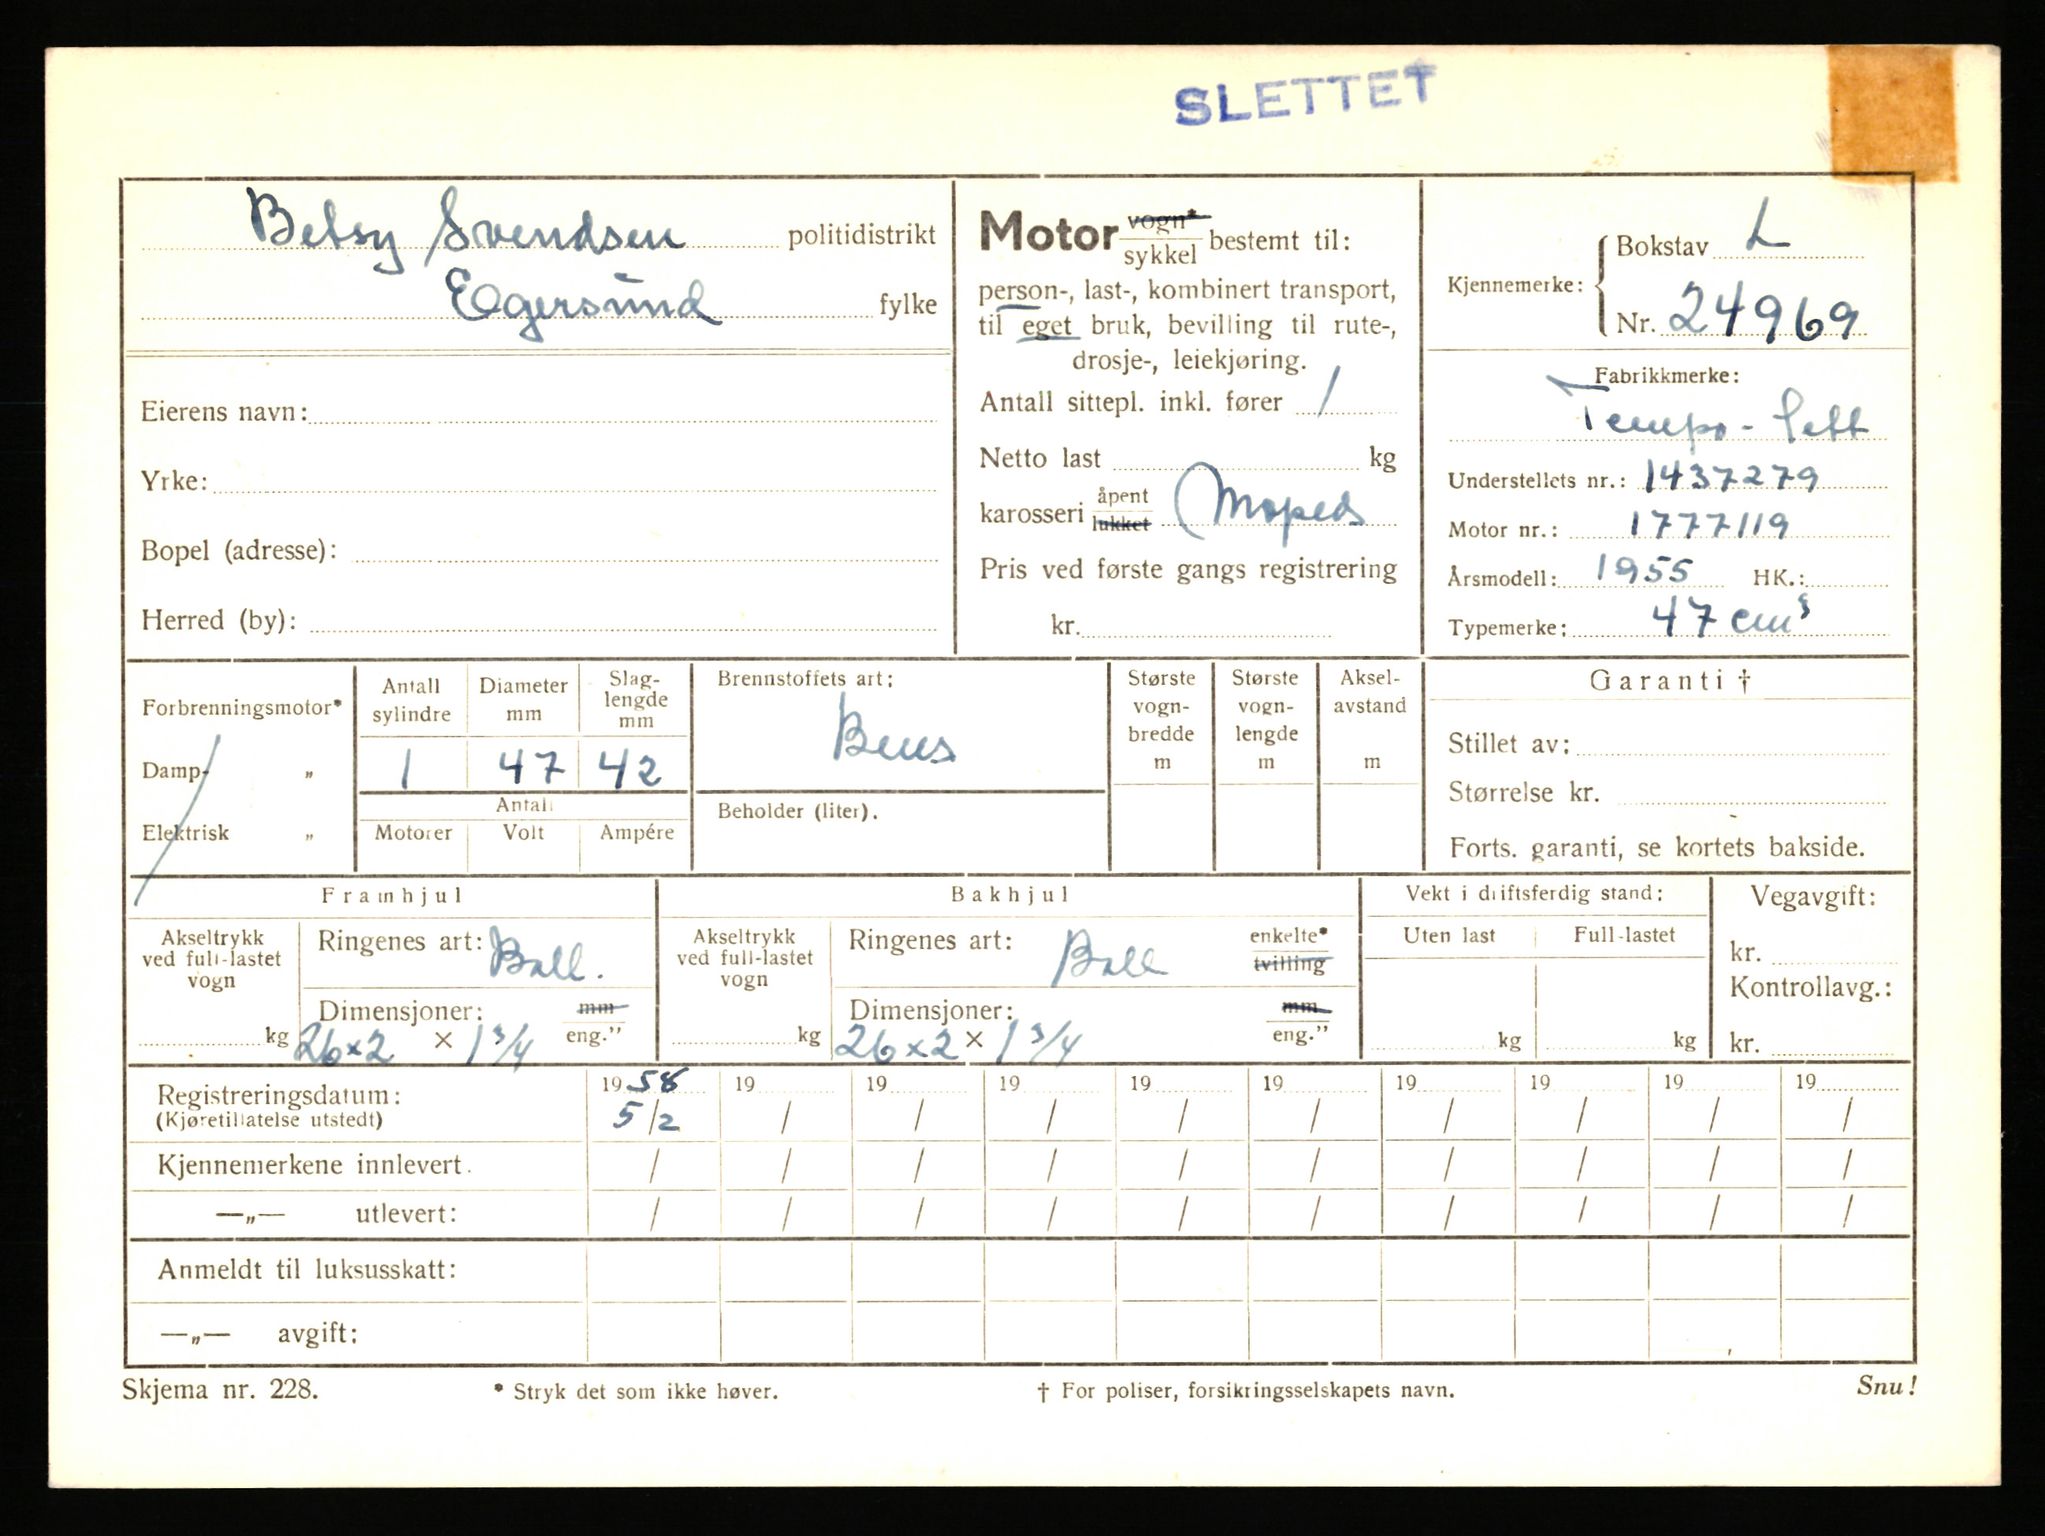 SLETTET
Betsy Svendsen politidistrikt
Egersund fylke
Eierens navn:
Yrke:
Bopel (adresse):
Herred (by):
Motor vogn* sykkel bestemt til:
person-, last-, kombinert transport,
til eget bruk, bevilling til rute-,
drosje-, leiekjøring.
Antall sittepl. inkl. fører 1
Netto last kg
karosseri åpent lukket Moped
Pris ved første gangs registrering
kr.
Kjennemerke: Bokstav L
Nr. 24969
Fabrikkmerke:
Tempo - lett
Understellets nr.: 1437279
Motor nr.: 1777119
Årsmodell: 1955 HK.:
Typemerke: 47 cm³
Forbrenningsmotor*
Damp- „
Elektrisk „
Antall sylindre
Diameter mm
Slag-lengde mm
1 47 42
Antall
Motorer Volt Ampére
Brennstoffets art:
Bens
Beholder (liter).
Største vogn-bredde m
Største vogn-lengde m
Aksel-avstand m
Garanti †
Stillet av:
Størrelse kr.
Forts. garanti, se kortets bakside.
Framhjul
Akseltrykk ved full-lastet vogn
kg
Ringenes art: Ball.
Dimensjoner: mm
26 x 2 × 1 3/4 eng.”
Bakhjul
Akseltrykk ved full-lastet vogn
kg
Ringenes art: Ball enkelte* tvilling
Dimensjoner: mm
26 x 2 × 1 3/4 eng.”
Vekt i driftsferdig stand:
Uten last Full-lastet
kg kg
Vegavgift:
kr.
Kontrollavg.:
kr.
Registreringsdatum: 1958 19 19 19 19 19 19 19 19 19
(Kjøretillatelse utstedt) 5/2 / / / / / / / / /
Kjennemerkene innlevert. / / / / / / / / / /
—„— utlevert: / / / / / / / / / /
Anmeldt til luksusskatt:
—„— avgift:
Skjema nr. 228. * Stryk det som ikke høver. † For poliser, forsikringsselskapets navn. Snu!